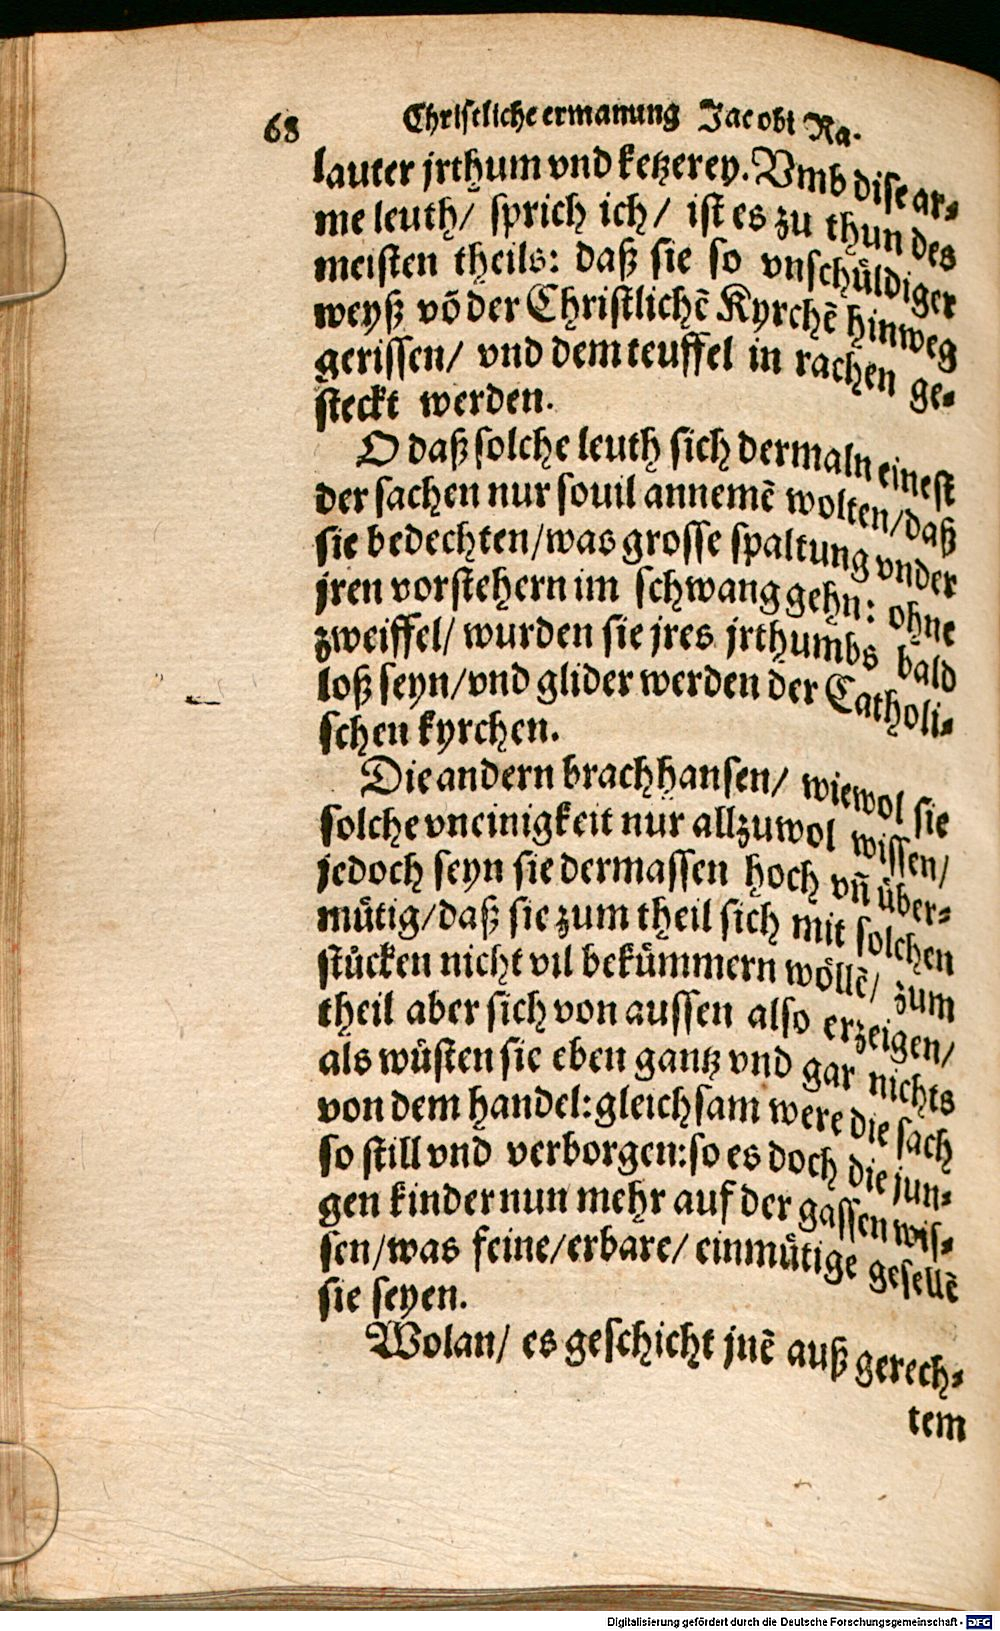 68 Christliche ermanung Jacobi Ra-
lauter jrthum vnd ketzerey. Vmb dise ar-
me leuth/ sprich ich/ ist es zu thun des
meisten theils: daß sie so vnschüldiger
weyß võ der Christlichẽ Kyrchẽ hinweg
gerissen/ vnd dem teuffel in rachen ge-
steckt werden.
O daß solche leuth sich dermaln einest
der sachen nur souil annemẽ wolten/ daß
sie bedechten/ was grosse spaltung vnder
jren vorstehern im schwang gehn: ohne
zweiffel/ wurden sie jres jrthumbs bald
loß seyn/ vnd glider werden der Catholi-
schen kyrchen.
Die andern brachhansen/ wiewol sie
solche vneinigkeit nur allzuwol wissen/
jedoch seyn sie dermassen hoch vñ über-
mütig/ daß sie zum theil sich mit solchen
stücken nicht vil bekümmern wöllẽ/ zum
theil aber sich von aussen also erzeigen/
als wüsten sie eben gantz vnd gar nichts
von dem handel: gleichsam were die sach
so still vnd verborgen: so es doch die jun-
gen kinder nun mehr auf der gassen wis-
sen/ was feine/ erbare/ einmütige gesellẽ
sie seyen.
Wolan/ es geschicht jnẽ auß gerech-
tem
Digitalisierung gefördert durch die Deutsche Forschungsgemeinschaft - DFG